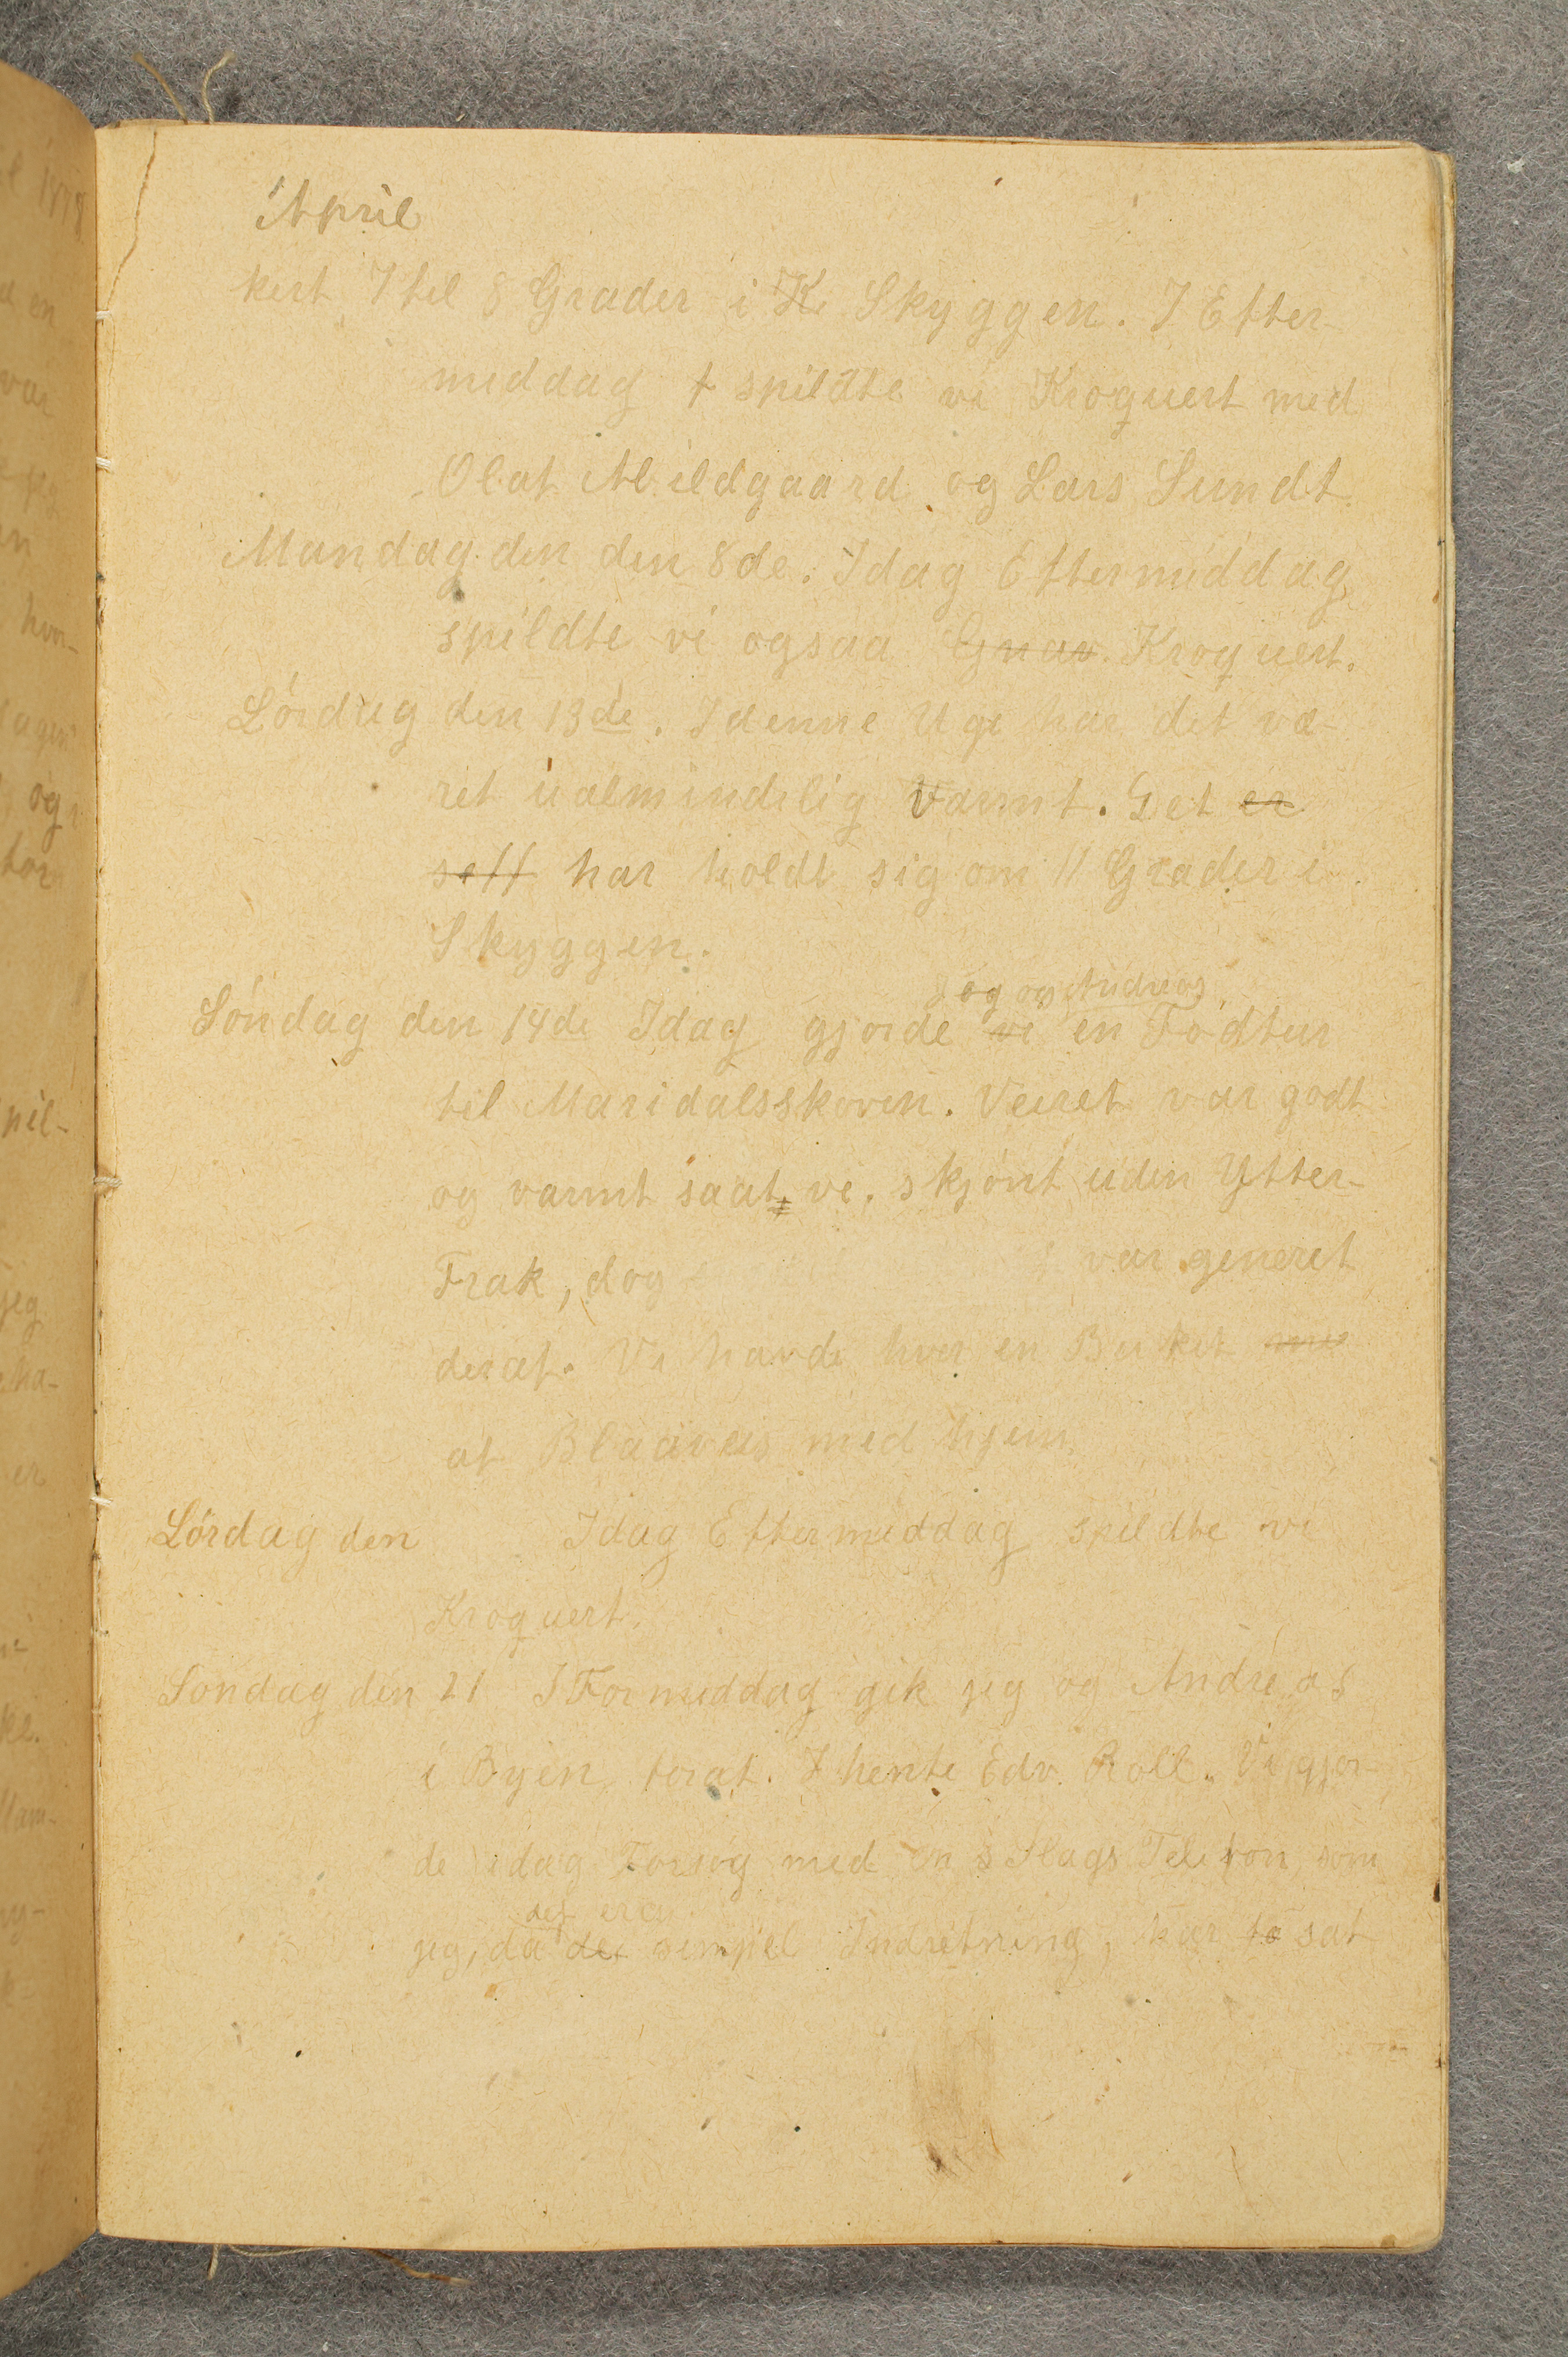 April
kert 7 til 8 Grader i K Skyggen. I Efter-
middag f spildte vi Kroquert med
Olaf Mildgaard og Lars Sundt
Mandag den den 8de. Idag Eftermiddag
spildte vi ogsaa Gnav Kroquert.
Lördag den 13de. I denne Uge har det væ-
ret ualmindelig varmt. Det er
har holdt sig om 11 Grader i
Skyggen.
jeg og Andreas
Söndag den 14de Idag gjorde vi en Fodtur
til Maridalsskoven. Veiret var godt
og varmt saat vi, skjönt uden Ytter-
Frak, dog var generet
deraf. Vi havde hver en Buket
af Blaaveis med hjem
Lördag den Idag Eftermiddag spildte vi
Kroquert.
Söndag den 21 I Formiddag gik jeg og Andreas
i Byen forat. I hente Edv. Roll. Vi gjor-
de idag Forsög med en s Slags Telefon, som
det er en
jeg, da det simpel Indretning, har fo sat